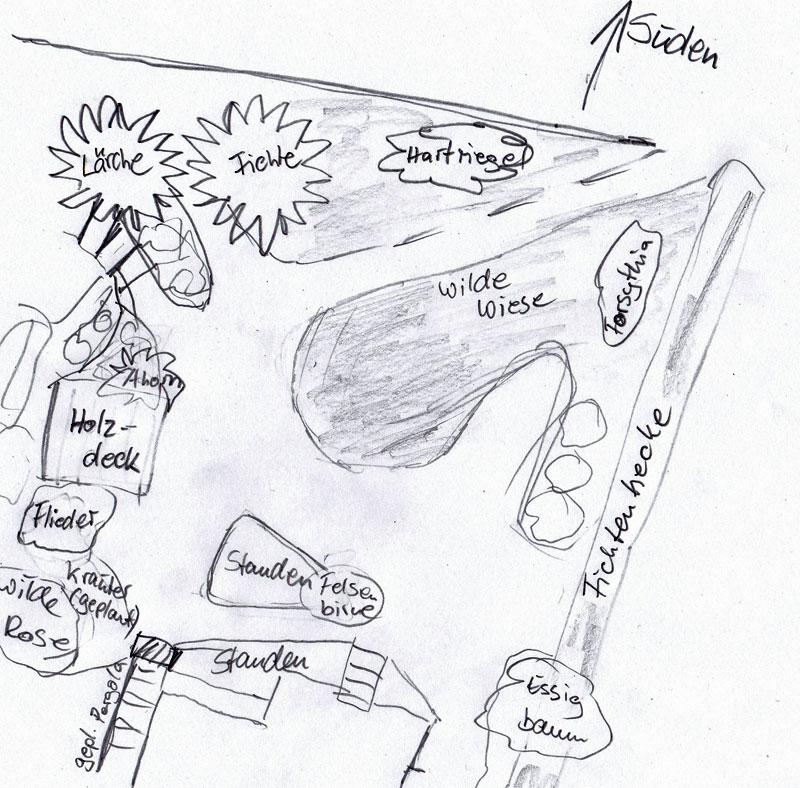 Süden
Lärche
Fichte
Hartriegel
wilde
Wiese
Forsythia
Ahorn
Holz-
deck
Fichtenhecke
Flieder
Kräuter
(geplant)
wilde
Rose
Stauden
Felsen
birne
Stauden
gepl. Pergola
Essig
baum